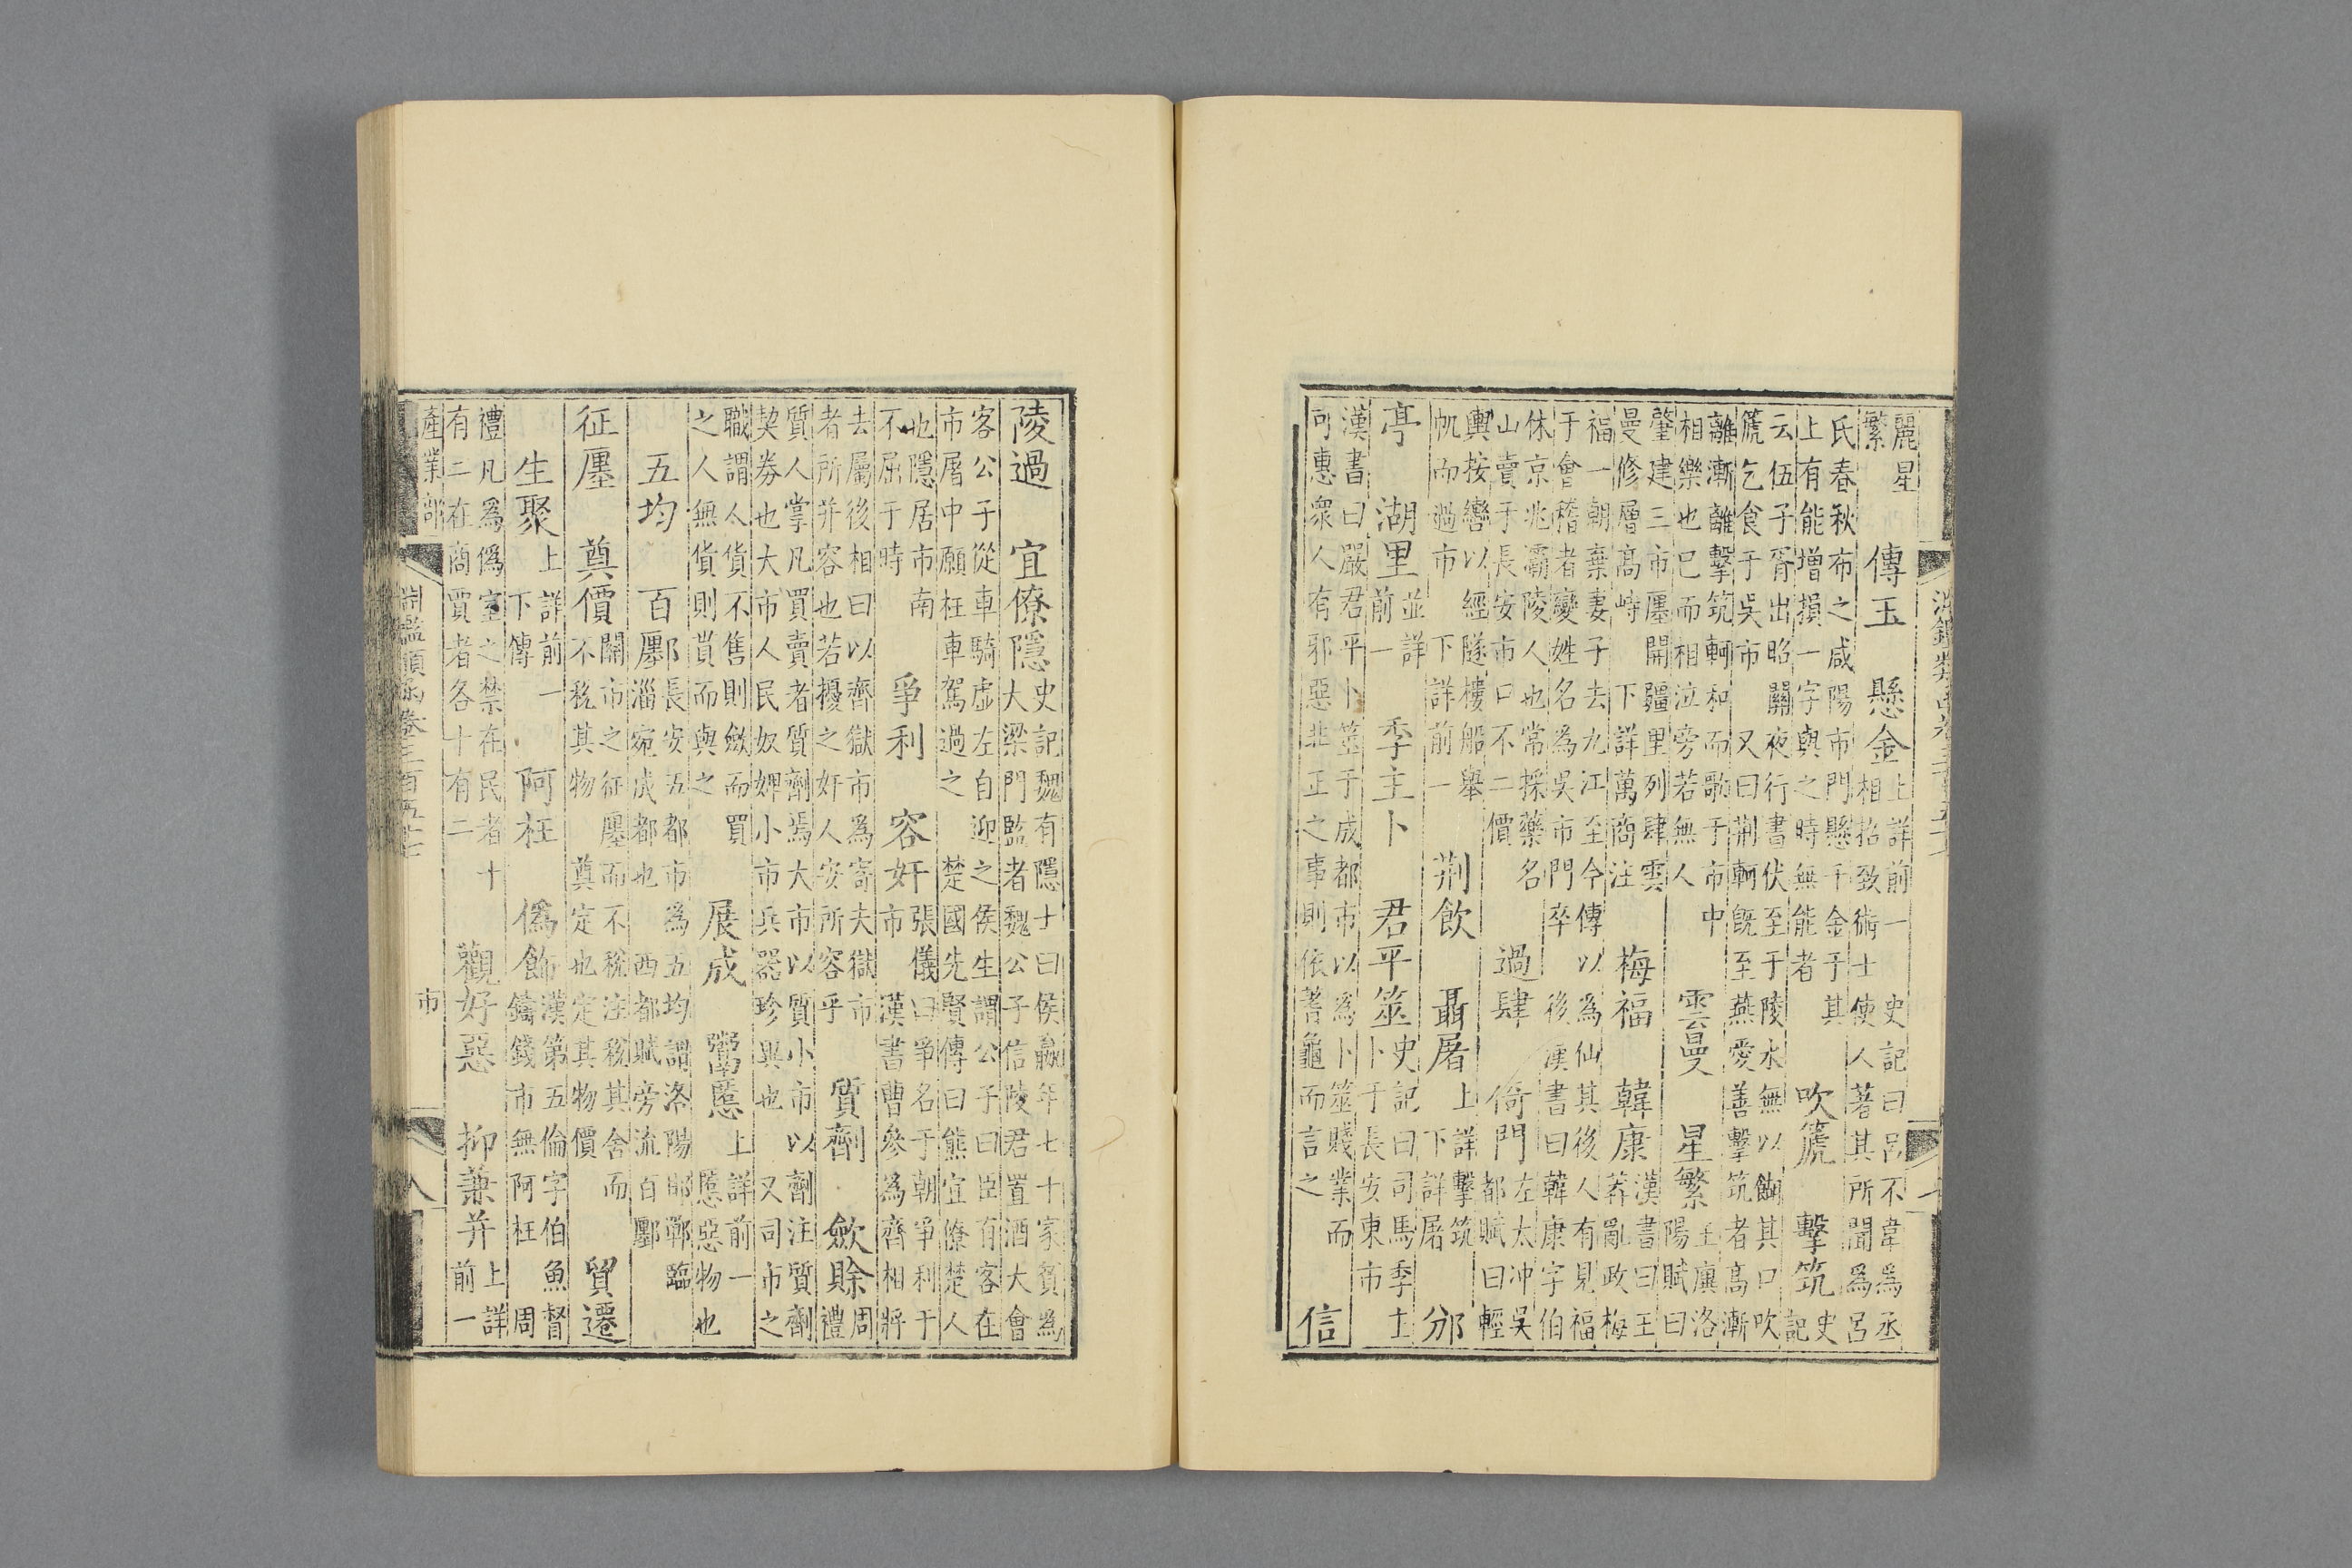 淵鑑類函卷三百五十七
麗星
繁
傳玉 懸金
上詳前一 史記曰呂不韋爲丞
相招致術士使人著其所聞爲呂
氏春秋布之咸陽市門懸千金于其
上有能增損一字與之時無能者
吹箎 擊筑
史
記
云伍子胥出昭關夜行書伏至于陵水無以餬其口吹
箎乞食于吳市 又曰荆軻旣至燕愛善擊筑者高漸
離漸離擊筑軻和而歌于市中
相樂也已而相泣旁若無人
雲曼 星繁
王廙洛
陽賦曰
肇建三市廛開疆里列肆雲
曼修層高峙 下詳萬商注
梅福 韓康
漢書曰王
莽亂政梅
福一朝棄妻子去九江至今傳以爲仙其後人有見福
于會稽者變姓名爲吳市門卒 後漢書曰韓康字伯
休京兆灞陵人也常採藥名
山賣于長安市口不二價
過肆 倚門
左太冲吳
都賦曰輕
輿按轡以經隧樓船舉
帆而過市 下詳前一
荆飲 聶屠
上詳擊筑
下詳屠
邠
亭 湖里
並詳
前一
季主卜 君平筮
史記曰司馬季主
卜于長安東市
漢書曰嚴君平卜筮于成都市以爲卜筮賤業而
可惠衆人有邪惡非正之事則依蓍龜而言之
信
陵過 宜僚隱
史記魏有隱士曰侯嬴年七十家貧爲
大梁門監者魏公子信陵君置酒大會
客公子從車騎虛左自迎之侯生謂公子曰臣有客在
市屠中願枉車駕過之 楚國先賢傳曰熊宜僚楚人
也隱居市南
不屈于時
爭利 容奸
張儀曰爭名于朝爭利于
市 漢書曹參爲齊相將
去屬後相曰以齊獄市爲寄夫獄市
者所并容也若擾之奸人安所容乎
質劑 斂賖
周
禮
質人掌凡買賣者質劑焉大市以質小市以劑注質劑
契券也大市人民奴婢小市兵器珍異也 又司市之
職謂人貨不售則斂而買
之人無貨則貰而與之
展成 鬻慝
上詳前一
慝惡物也
五均 百廛
長安五都市爲五均謂洛陽邯鄲臨
淄宛成都也 西都賦旁流百廛
征廛 奠價
關市之征廛而不稅注稅其舍而
不稅其物 奠定也定其物價
貿遷
生聚
上詳前一
下傳
阿枉 僞飾
漢第五倫字伯魚督
鑄錢市無阿枉 周
禮凡爲僞室之禁在民者十
有二在商賈者各十有二
觀好惡 抑兼并
上詳
前一
產業部
淵鑑類函卷三百五十七
市
八